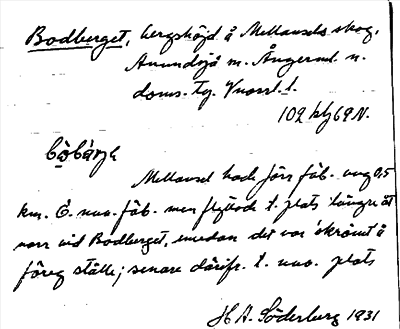 Bodberget, bergshöjd å Mellansels skog,
Anundsjö sn. Ångermanl. n.
doms. tg. Vnorrl. l.
102 kbg 69 N.
Mellansel hade förr fäb. ung 0,5
km. Ö. nuv. fäb. men flyttade t. plats längre åt
norr vid Bodberget, emedan det var "skrömt" å
föreg ställe; senare därifr. t. nuv. plats
H A. Söderberg 1931